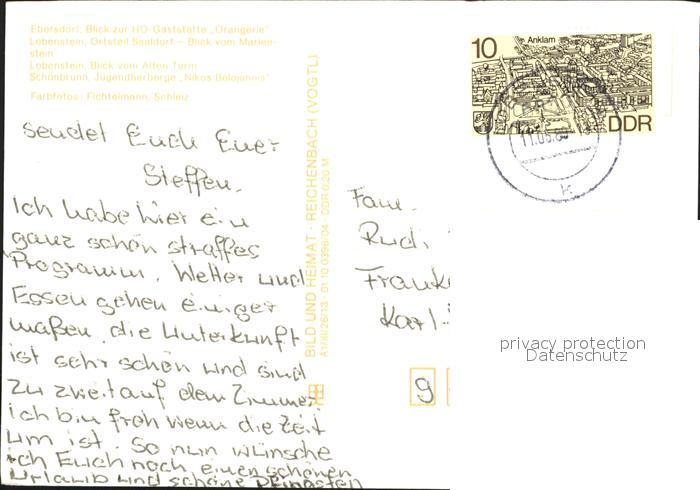 Ebersdorf, Blick zur HO-Gaststätte „Orangerie"
Lobenstein, Ortsteil Saaldorf – Blick vom Marien-
stein
Lobenstein, Blick vom Alten Turm
Schönbrunn, Jugendherberge „Nikos Belojannis"
Farbfotos: Fichtelmann, Schleiz
sendet Euch Euer
Steffen.
Ich habe hier ein
ganz schön straffes
Programm. Wetter und
Essen gehen einiger
maßen, die Unterkunft
ist sehr schön und sind
zu zweit auf dem Zimmer.
ich bin froh wenn die Zeit
um ist. So nun wünsche
ich Euch noch einen schönen
Urlaub und schöne Pfingsten
BILD UND HEIMAT · REICHENBACH (VOGTL)
A1/III/26/13 · 01 10 0396/04 · DDR 0,20 M
10
Anklam
DDR
Fam.
Rudi
Frank
Karl-
9
privacy protection
Datenschutz